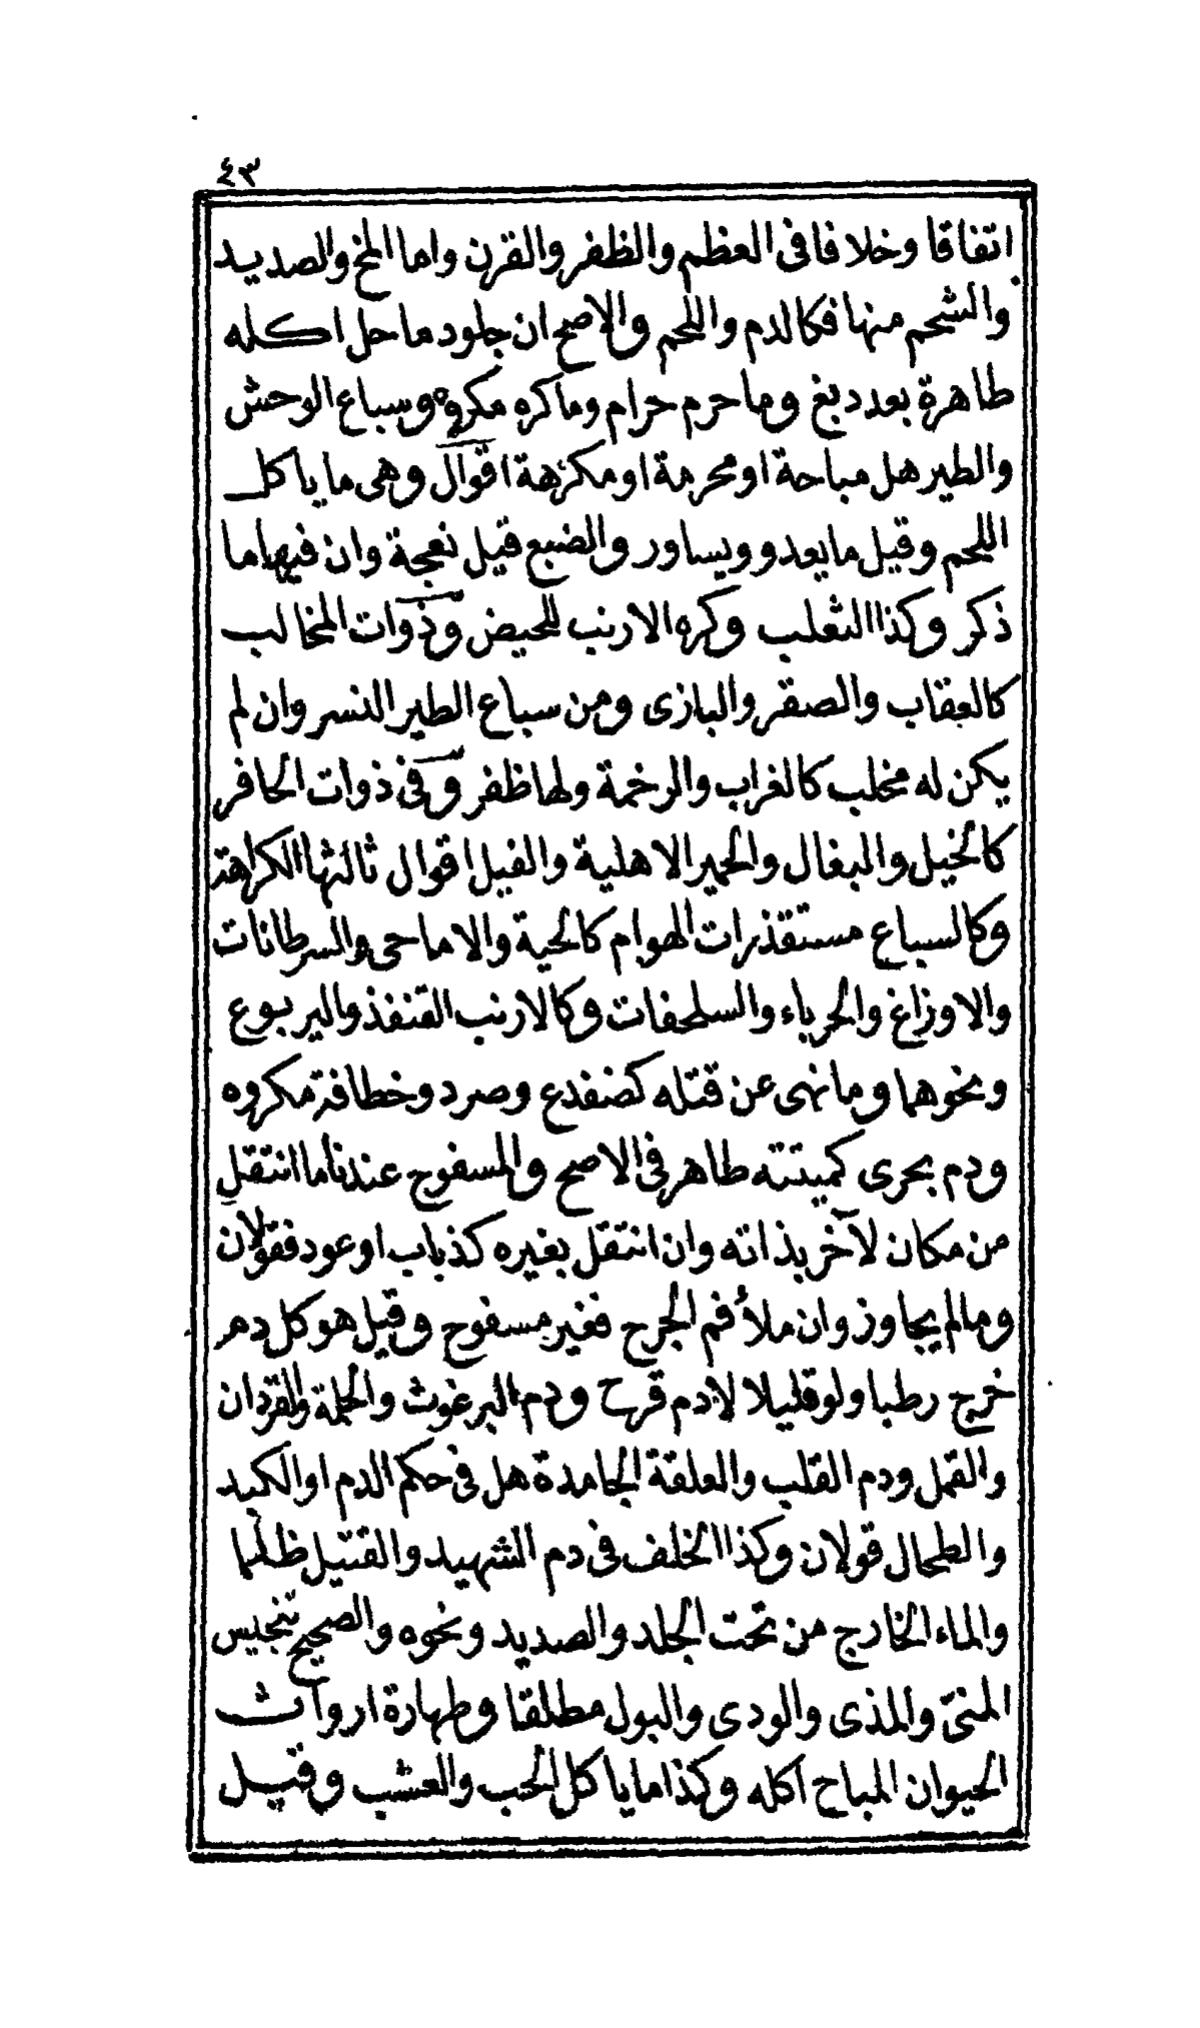 ٤٣
اتفاقا وخلافا فى العظم والظفر والقرن واما المخ والصديد
والشحم منها فكالدم واللحم والاصح ان جلود ما حل اكله
طاهرة بعد دبغ وما حرم حرام وما كره مكروه وسباع الوحش
والطير هل مباحة او محرمة او مكرهة اقوال وهى ما ياكل
اللحم وقيل ما يعدو ويساور والضبع قيل نعجة وان فيها ما
ذكر وكذا الثعلب وكره الارنب للحيض وذوات المخالب
كالعقاب والصقر والبازى ومن سباع الطير النسر وان لم
يكن له مخلب كالغراب والرخمة ولها ظفر وفى ذوات الحافر
كالخيل والبغال والحمير الاهلية والفيل اقوال ثالثها الكراهة
وكالسباع مستقذرات الهوام كالحية والاماحى والسرطانات
والاوزاغ والحرباء والسلحفات وكالارنب القنفذ واليربوع
ونحوهما وما نهى عن قتله كضفدع وصرد وخطافة مكروه
ودم بحرى كميتته طاهر فى الاصح والمسفوح عندنا ما انتقل
من مكان لآخر بذاته وان انتقل بغيره كذباب او عود فقولان
وما لم يجاوز وان ملأ فم الجرح فغير مسفوح وقيل هو كل دم
خرج رطبا ولو قليلا لا دم قرح ودم البرغوث والحلمة والقردان
والقمل ودم القلب والعلقة الجامدة هل فى حكم الدم او الكبد
والطحال قولان وكذا الخلف فى دم الشهيد والقتيل ظلما
والماء الخارج من تحت الجلد والصديد ونحوه والصحيح تنجيس
المنىّ والمذى والودى والبول مطلقا وطهارة ارواث
الحيوان المباح اكله وكذا ما ياكل الحب والعشب وقيل